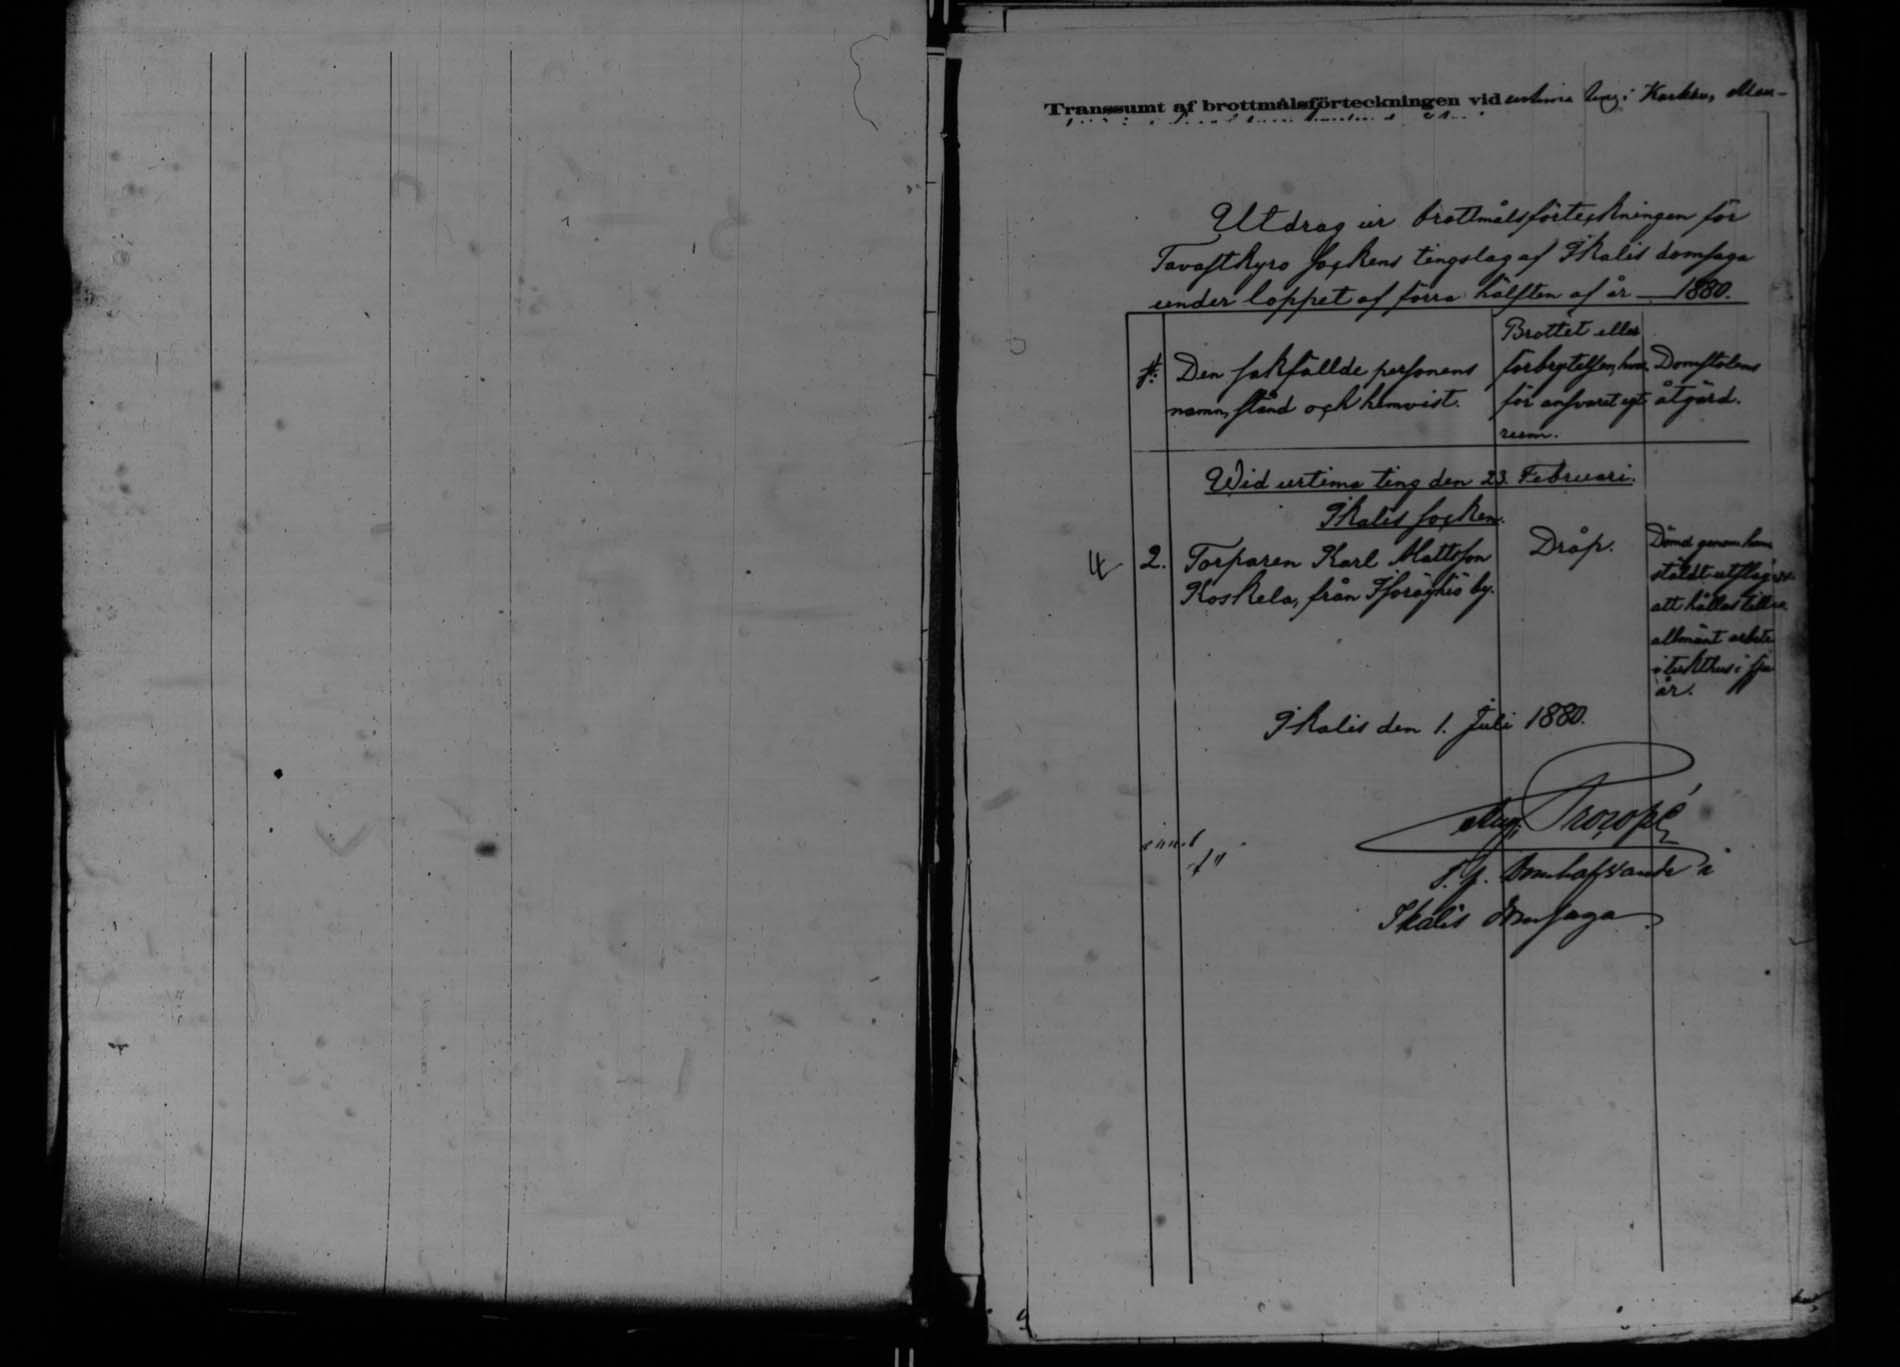 Transsumt af brottmålsförteckningen vid urtima ting i Karkku,
Utdrag ur brottmålsförteckningen för
Tavastkyro sockens tingslag af Ikalis domsaga
under loppet af förra hälften af år 1880.
№:
Den sakfällde personens
namn, stånd och hemvist.
Brottet eller
förbrytelsen, hvar
för ansvaret egt
rum.
Domstolens
åtgärd.
Wid urtima ting den 23. Februari.
Ikalis socken.
2. Torparen Karl Mattsson
Koskela, från by.
Dråp.
Dömd genom hem
stäldt utslag
att hållas till
allmänt arbete
i tukthus i sju
år.
Ikalis den 1. Juli 1880.
Aug. Procopé
Domhafvande i
Ikalis domsaga.